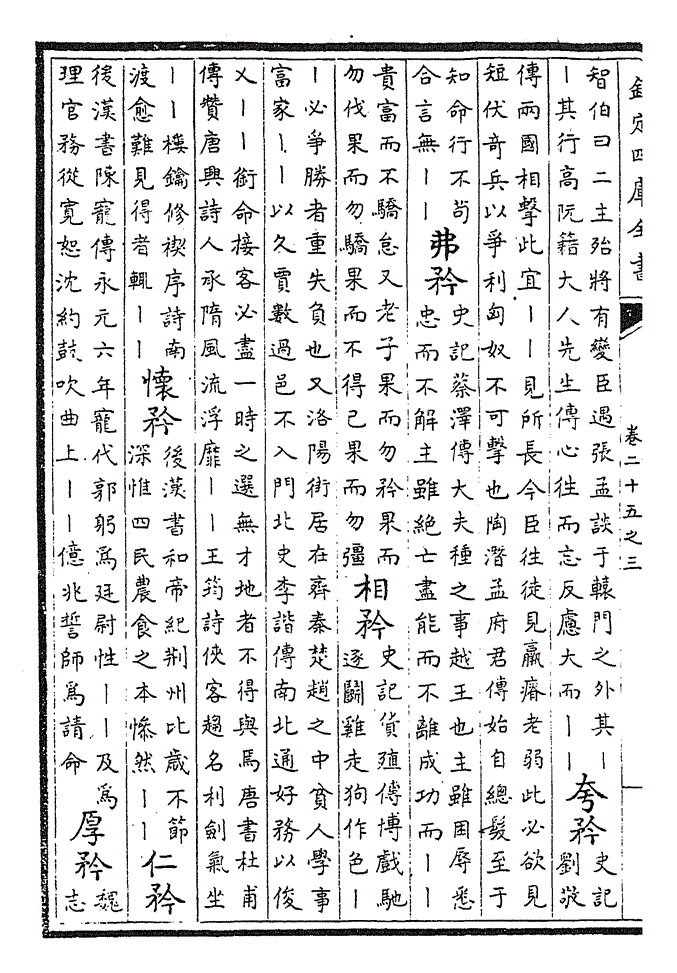 欽定四庫全書
卷二十五之三
智伯曰二主殆將有變臣遇張孟談于轅門之外其丨
丨其行高阮籍大人先生傳心徃而忘反慮大而丨丨
夸矜
史記
劉敬
傳兩國相擊此宜丨丨見所長今臣徃徒見羸瘠老弱此必欲見
短伏奇兵以爭利匈奴不可擊也陶潛孟府君傳始自總髮至于
知命行不茍
合言無丨丨
弗矜
史記蔡澤傳大夫種之事越王也主雖困辱悉
忠而不解主雖絶亡盡能而不離成功而丨丨
貴富而不驕怠又老子果而勿矜果而
勿伐果而勿驕果而不得已果而勿彊
相矜
史記貨殖傳博戲馳
逐鬭雞走狗作色丨
丨必爭勝者重失負也又洛陽街居在齊秦楚趙之中貧人學事
富家丨丨以久賈數過邑不入門北史李諧傳南北通好務以俊
乂丨丨銜命接客必盡一時之選無才地者不得與焉唐書杜甫
傳贊唐興詩人承隋風流浮靡丨丨王筠詩俠客趨名利劍氣坐
丨丨樓鑰修禊序詩南
渡愈難見得者輒丨丨
懷矜
後漢書和帝紀荆州比歲不節
深惟四民農食之本慘然丨丨
仁矜
後漢書陳寵傳永元六年寵代郭躬爲廷尉性丨丨及爲
理官務從寛恕沈約鼓吹曲上丨丨億兆誓師爲請命
厚矜
魏
志